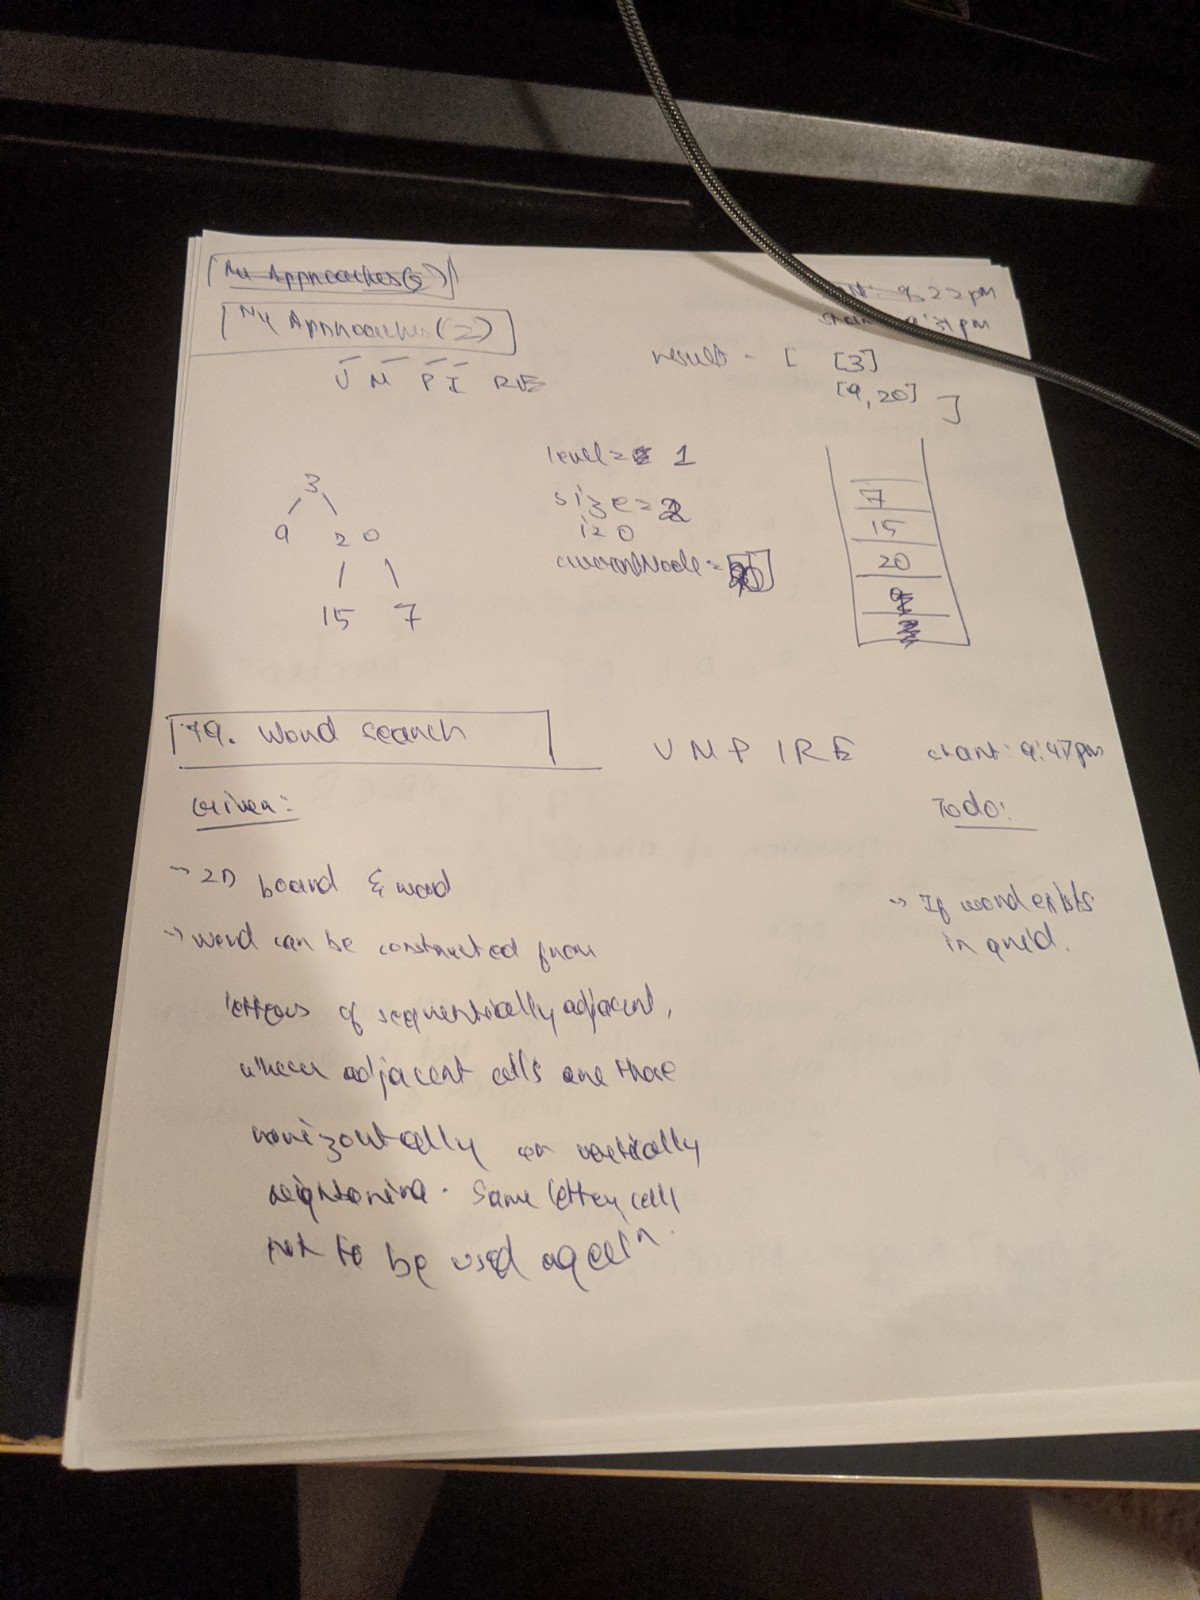 My Approaches(2)
My Approaches(2)
9:22pm
start 9:31pm
U M P I R E
result = [ [3]
[9,20] ]
level = 1
size = 2
i=0
currentNode =
3
9 20
15 7
7
15
20
9
79. Word search
U M P I R E
start: 9:47pm
Given:
Todo:
→ 2D board & word
→ If word exists
in grid.
→ word can be constructed from
letters of sequentially adjacent,
where adjacent cells are those
horizontally or vertically
neighboring. Same letter cell
not to be used again.